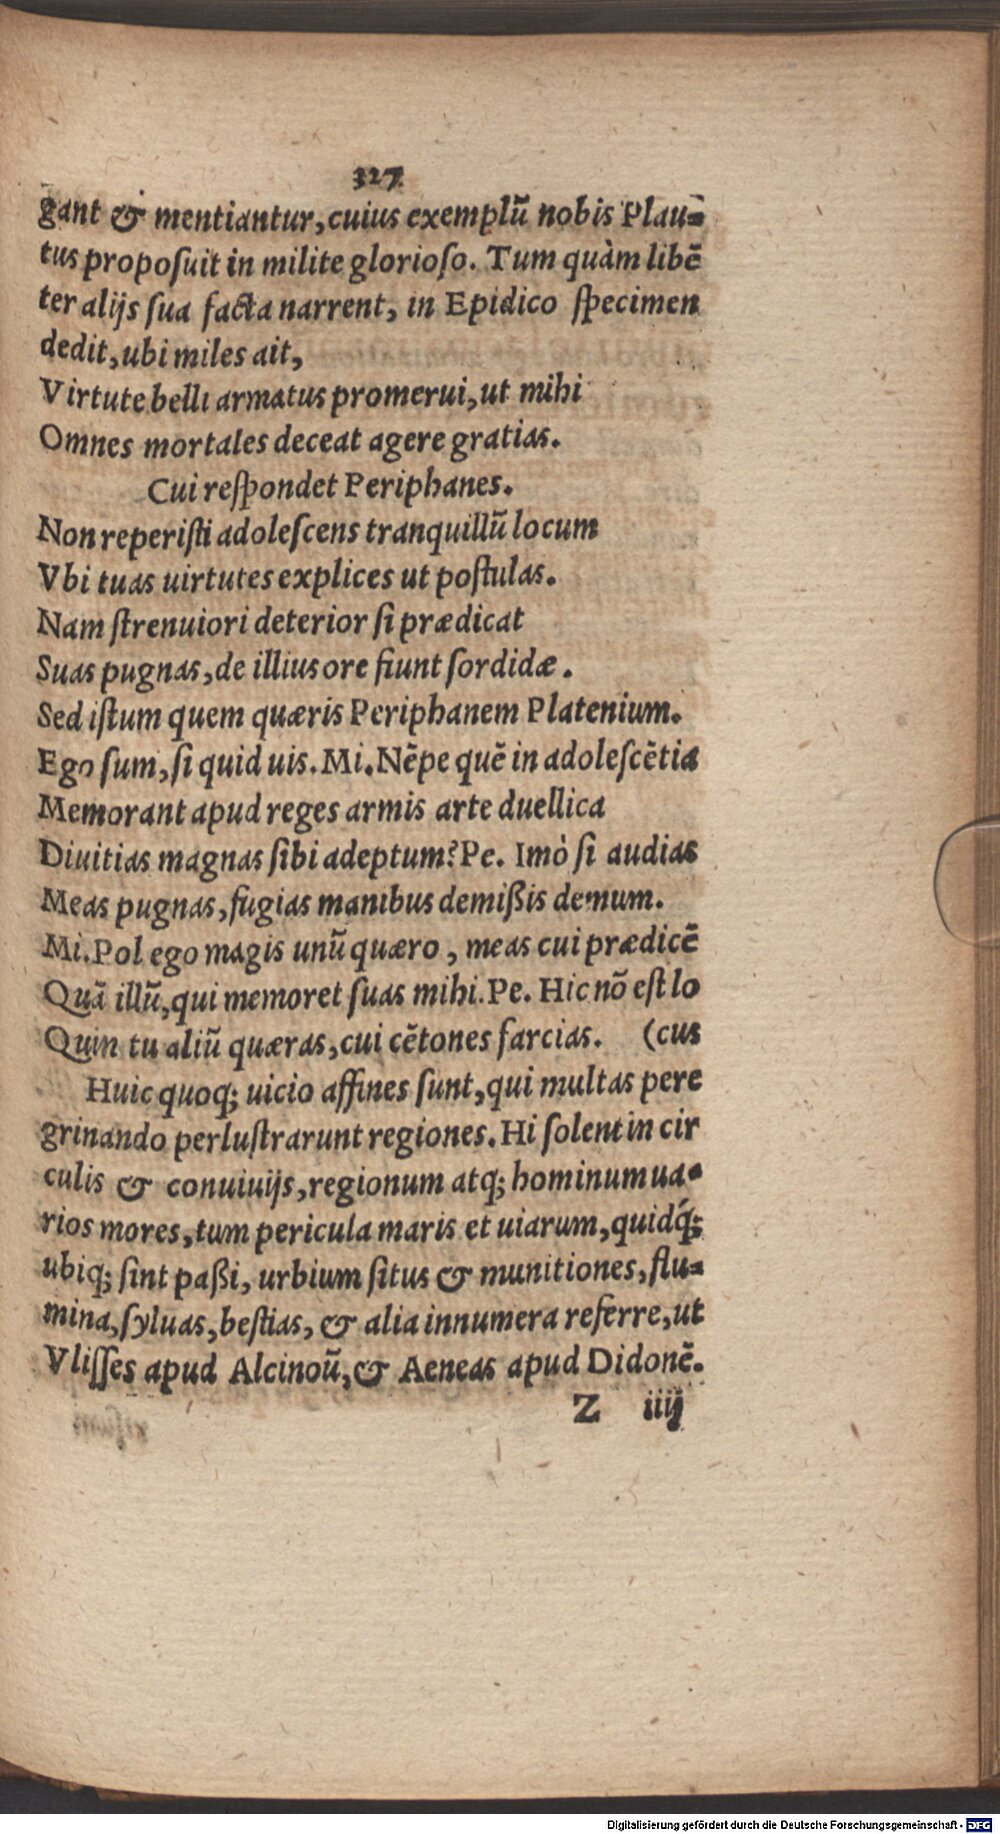 327
gant & mentiantur, cuius exemplũ nobis Plau-
tus proposuit in milite glorioso. Tum quàm libẽ
ter alijs sua facta narrent, in Epidico specimen
dedit, ubi miles ait,
Virtute belli armatus promerui, ut mihi
Omnes mortales deceat agere gratias.
Cui respondet Periphanes.
Non reperisti adolescens tranquillũ locum
Vbi tuas uirtutes explices ut postulas.
Nam strenuiori deterior si prædicat
Suas pugnas, de illius ore fiunt sordidæ.
Sed istum quem quæris Periphanem Platenium.
Ego sum, si quid uis. Mi. Nẽpe quẽ in adolescẽtia
Memorant apud reges armis arte duellica
Diuitias magnas sibi adeptum? Pe. Imò si audias
Meas pugnas, fugias manibus demißis demum.
Mi. Pol ego magis unũ quæro, meas cui prædicẽ
Quã illũ, qui memoret suas mihi. Pe. Hic nõ est lo
Quin tu aliũ quæras, cui cẽtones farcias. (cus
Huic quoq; uicio affines sunt, qui multas pere
grinando perlustrarunt regiones. Hi solent in cir
culis & conuiuijs, regionum atq; hominum ua-
rios mores, tum pericula maris et uiarum, quidq́;
ubiq; sint paßi, urbium situs & munitiones, flu-
mina, syluas, bestias, & alia innumera referre, ut
Vlisses apud Alcinoũ, & Aeneas apud Didonẽ.
Z iiij
Digitalisierung gefördert durch die Deutsche Forschungsgemeinschaft - DFG